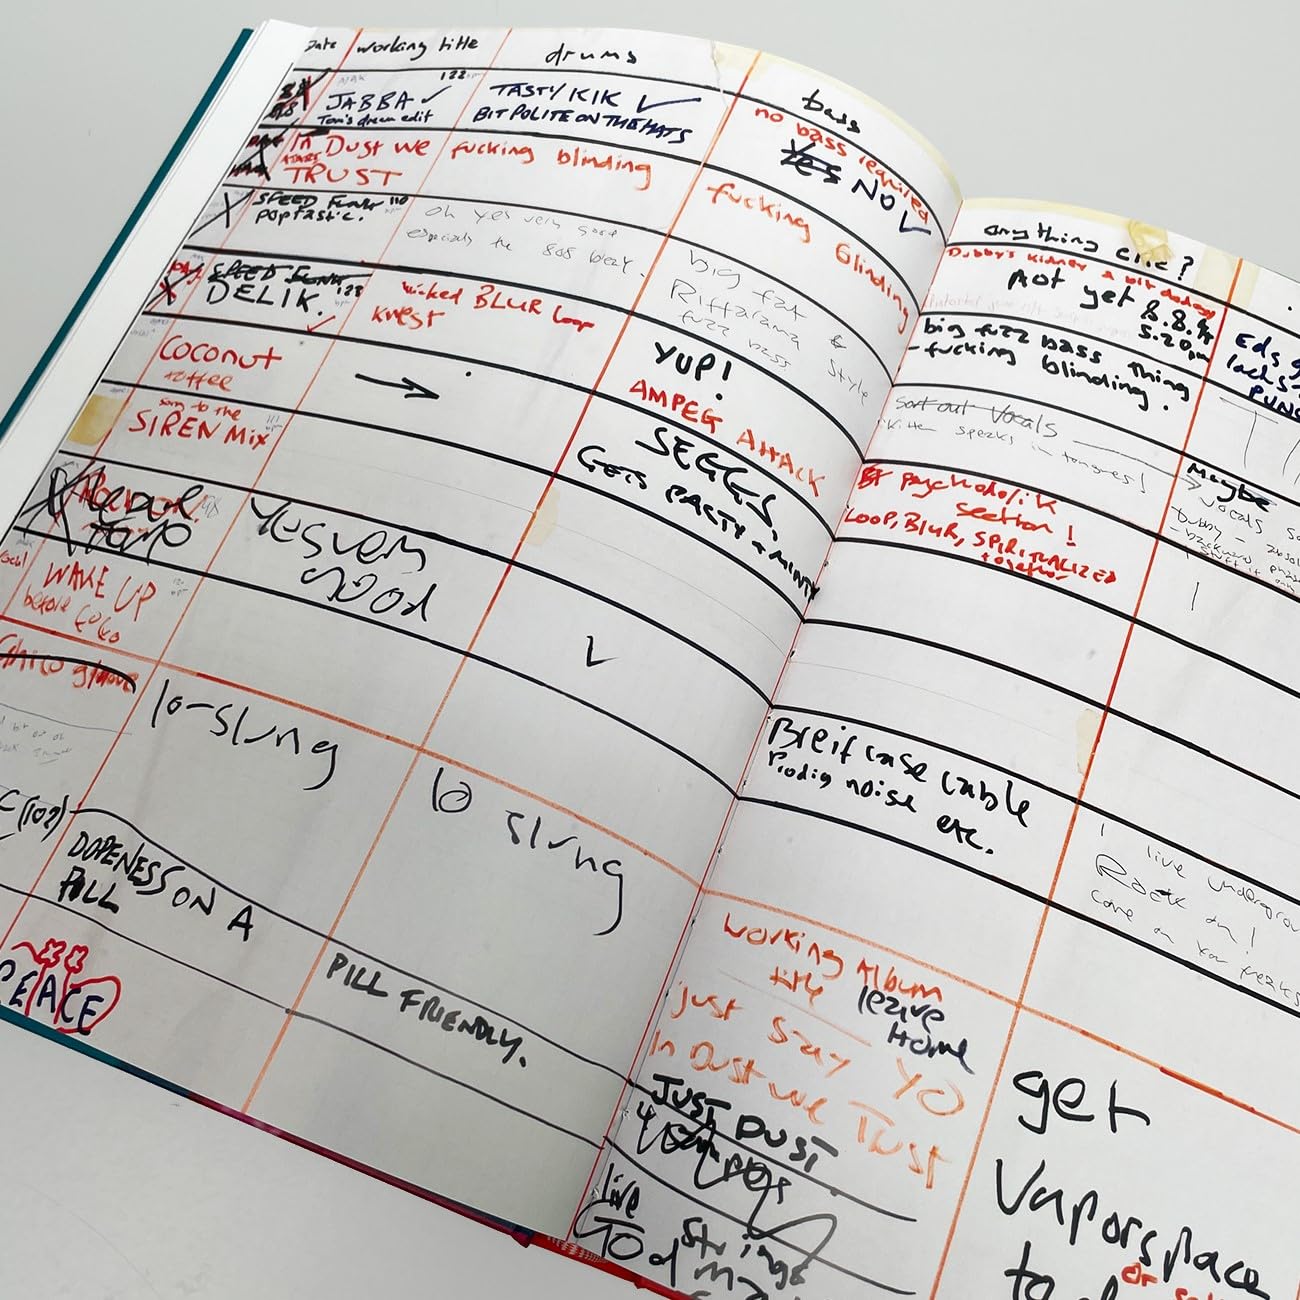 Date working title drums bass
JABBA ✓ 122
Tom's dream edit
TASTY KIK ✓
BIT POLITE ON THE HATS
no bass required
Yes NO
In Dust we
TRUST
fucking blinding
fucking blinding
SPEED FUNK 110
poptastic.
oh yes very good
especially the 808 
big fat
Riffarama &
fuzz bass style
SPEED FUNK
DELIK. 123
wicked BLUR loop
KWEST
YUP!
AMPEG ATTACK
Coconut
toffee
→
SEGGS,
GETS PARTY + MINTY
song to the
SIREN MIX
Yes very
good
WAKE UP
before coko
✓
Chico groove
lo-slung
lo slung
C(102)
DOPENESS ON A
PILL
PILL FRIENDLY.
PEACE
anything else?
Dubby's kidney a bit dodgy
Not yet 8.8.94
5.20pm
big fuzz bass thing
- fucking blinding.
Eds
PUNC
Sort out Vocals
Kitten speaks in tongues!
Maybe
vocals
psychodolik
section!
LOOP, BLUR, SPIRITUALIZED
together
Breifcase cable
Prodig noise
etc.
live undergrou
Rock on!
come on you freaks
working Album
title leave
Home
just say YO
In Dust we Trust
JUST DUST
live
strings
get
Vaporspace
to
or